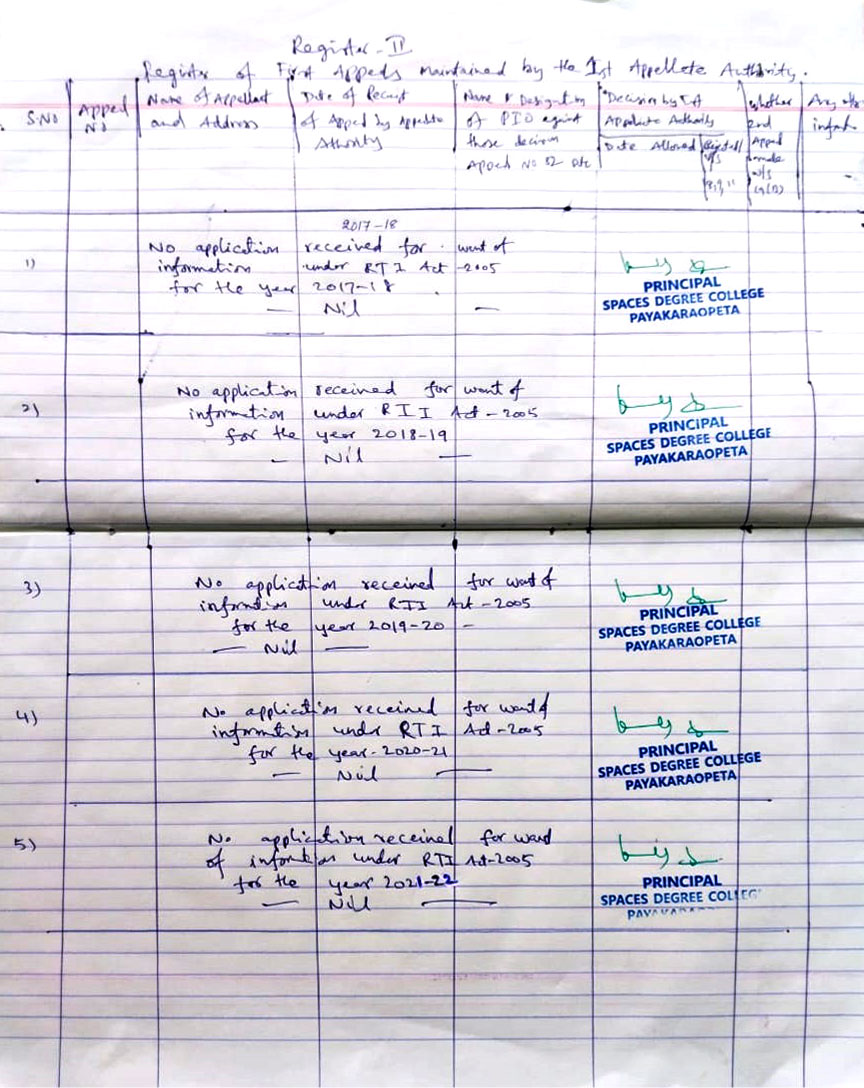 Register-II
Register of First Appeals maintained by the 1st Appellete Authority.
S.NO
Appeal NO
Name of Appellant and Address
Date of Receipt of Appeal by Appellate Athority
Name & Designation of PIO against those decision Appeal No
Decision by 1st Appellate Authority
Date Allowed
Rejected
whether 2nd Appeal made u/s 19(3)
Any
2017-18
1) No application received for want of
information under RTI Act -2005
for the year 2017-18
— Nil —
PRINCIPAL
SPACES DEGREE COLLEGE
PAYAKARAOPETA
2) No application received for want of
information under RTI Act - 2005
for the year 2018-19
— Nil —
PRINCIPAL
SPACES DEGREE COLLEGE
PAYAKARAOPETA
3) No application received for want of
information under RTI Act - 2005
for the year 2019-20 -
— Nil —
PRINCIPAL
SPACES DEGREE COLLEGE
PAYAKARAOPETA
4) No application received for want of
information under RTI Act-2005
for the year-2020-21
— Nil —
PRINCIPAL
SPACES DEGREE COLLEGE
PAYAKARAOPETA
5) No application received for want
of information under RTI Act-2005
for the year 2021-22
— Nill —
PRINCIPAL
SPACES DEGREE COLLEGE